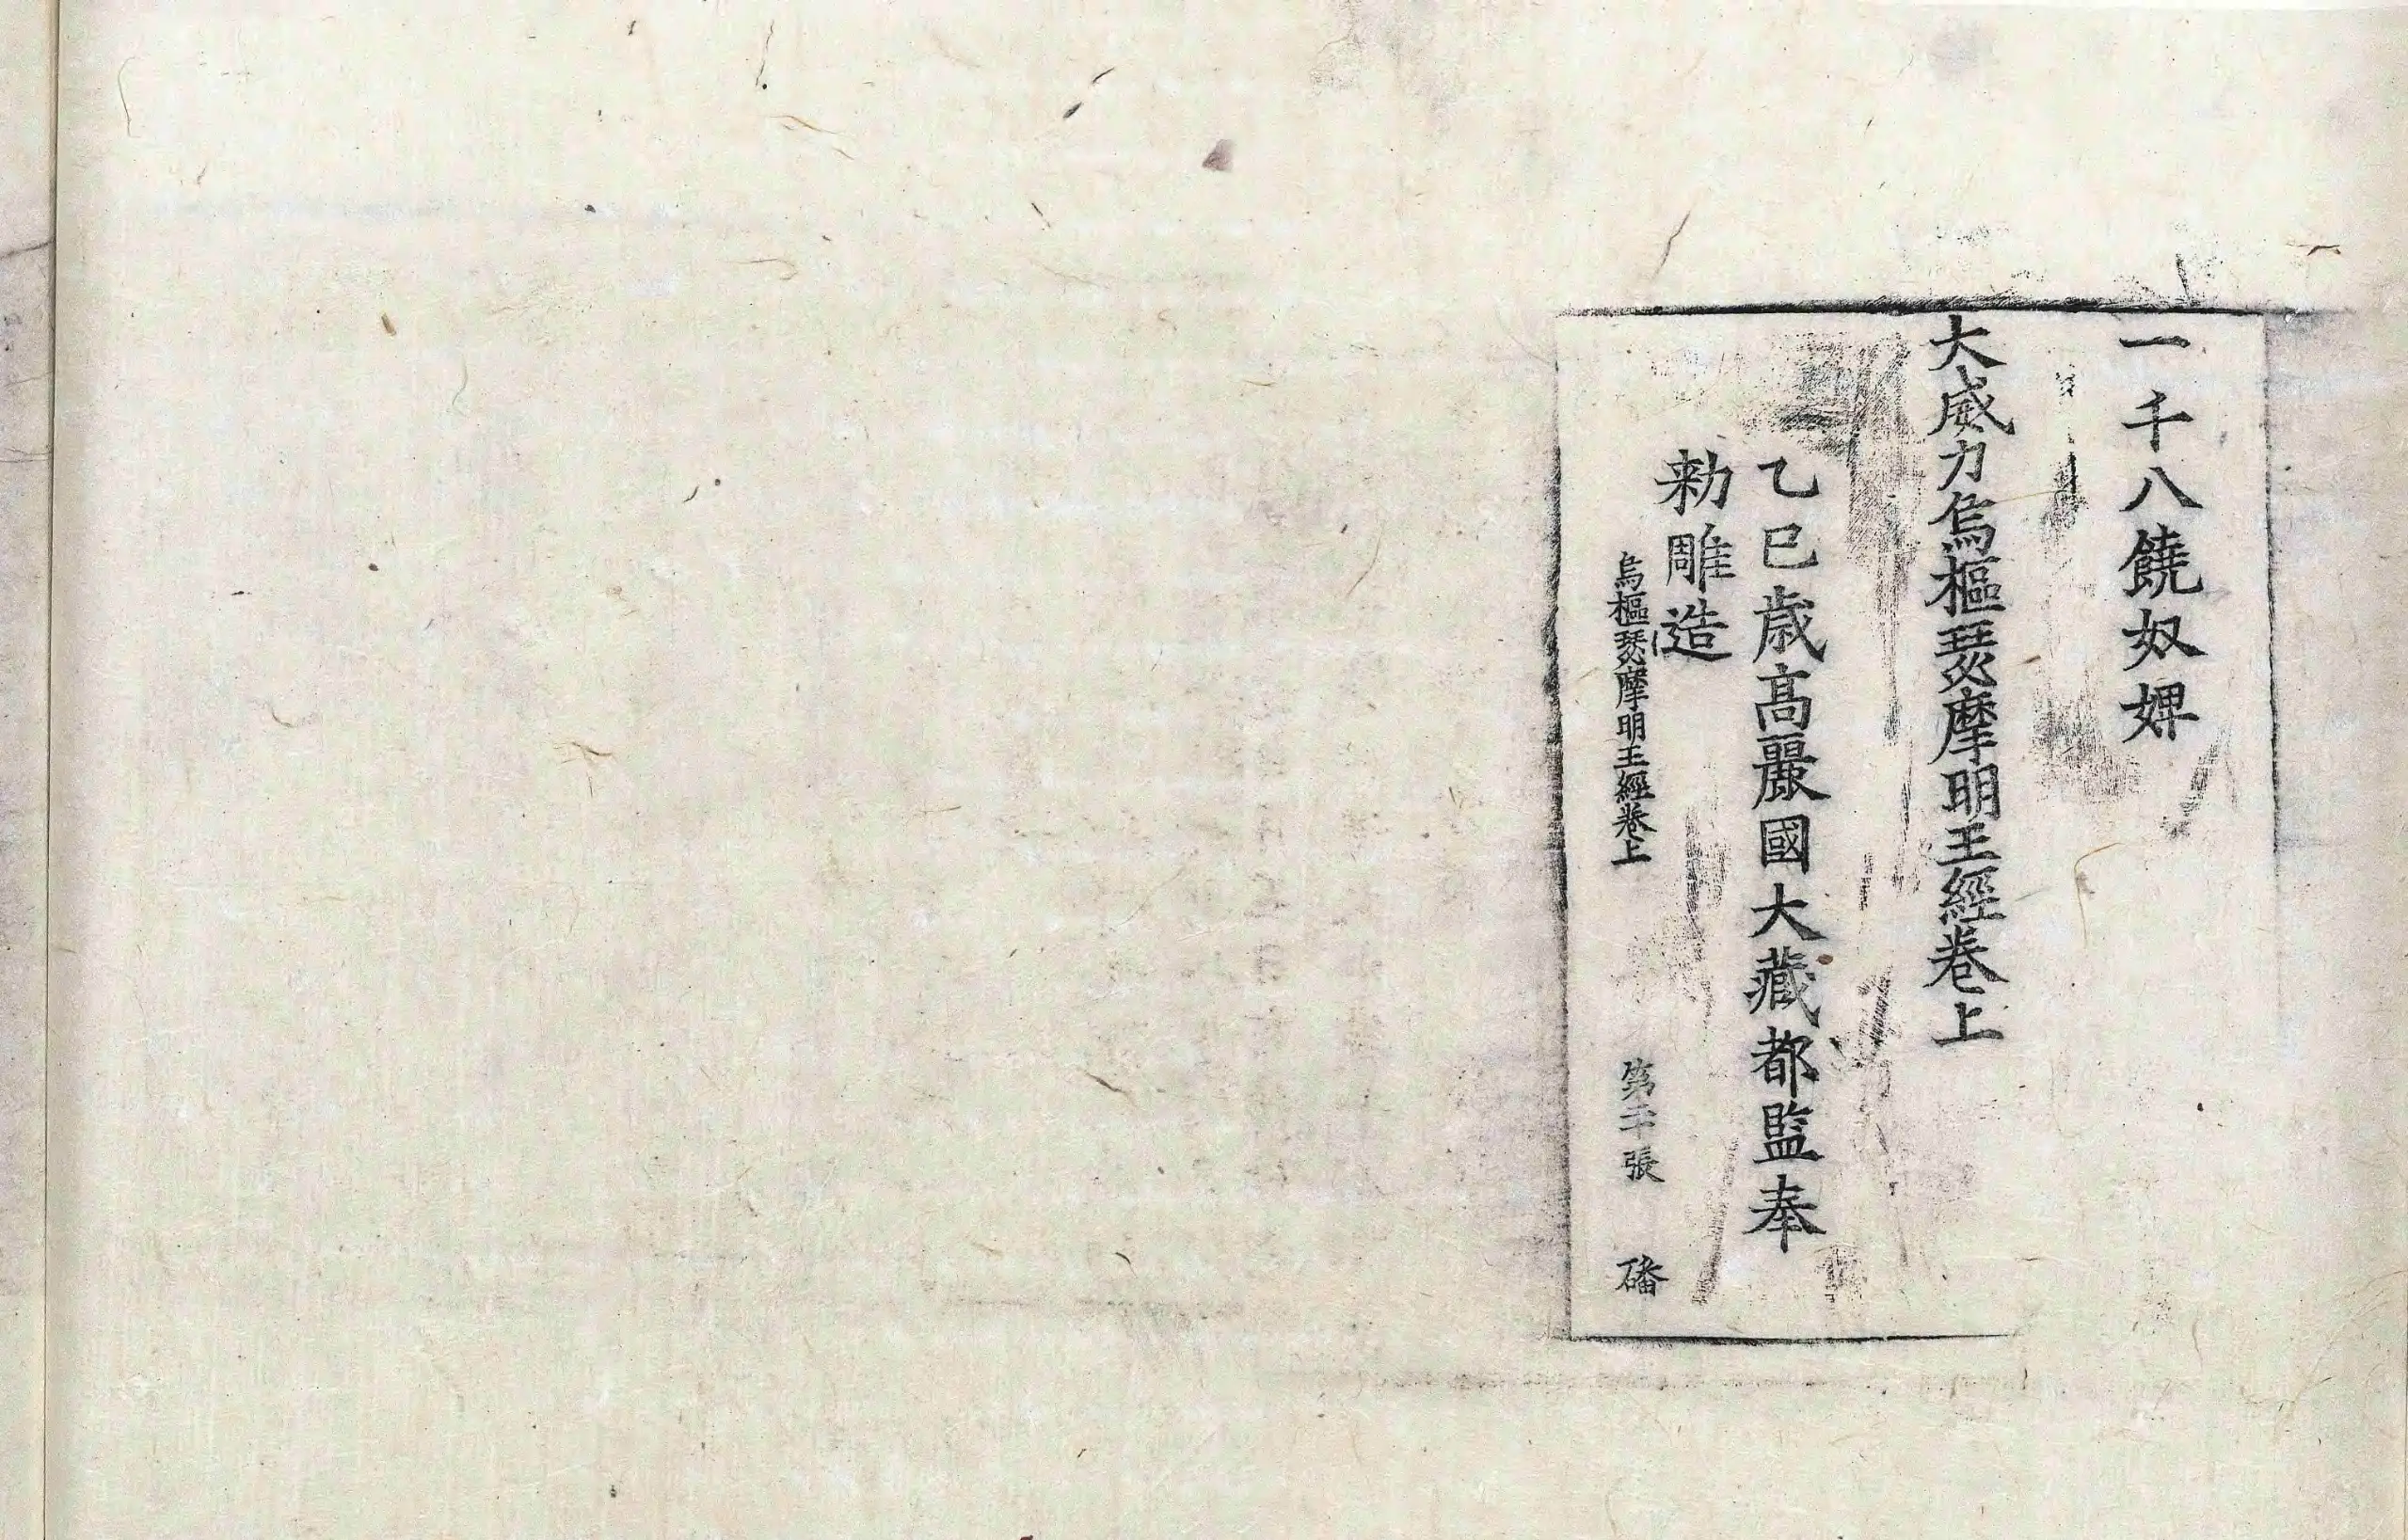 一千八饒奴婢
大威力烏樞瑟摩明王經卷上
乙巳歲高麗國大藏都監奉
勑雕造
烏樞瑟摩明王經卷上 第二十張 磻